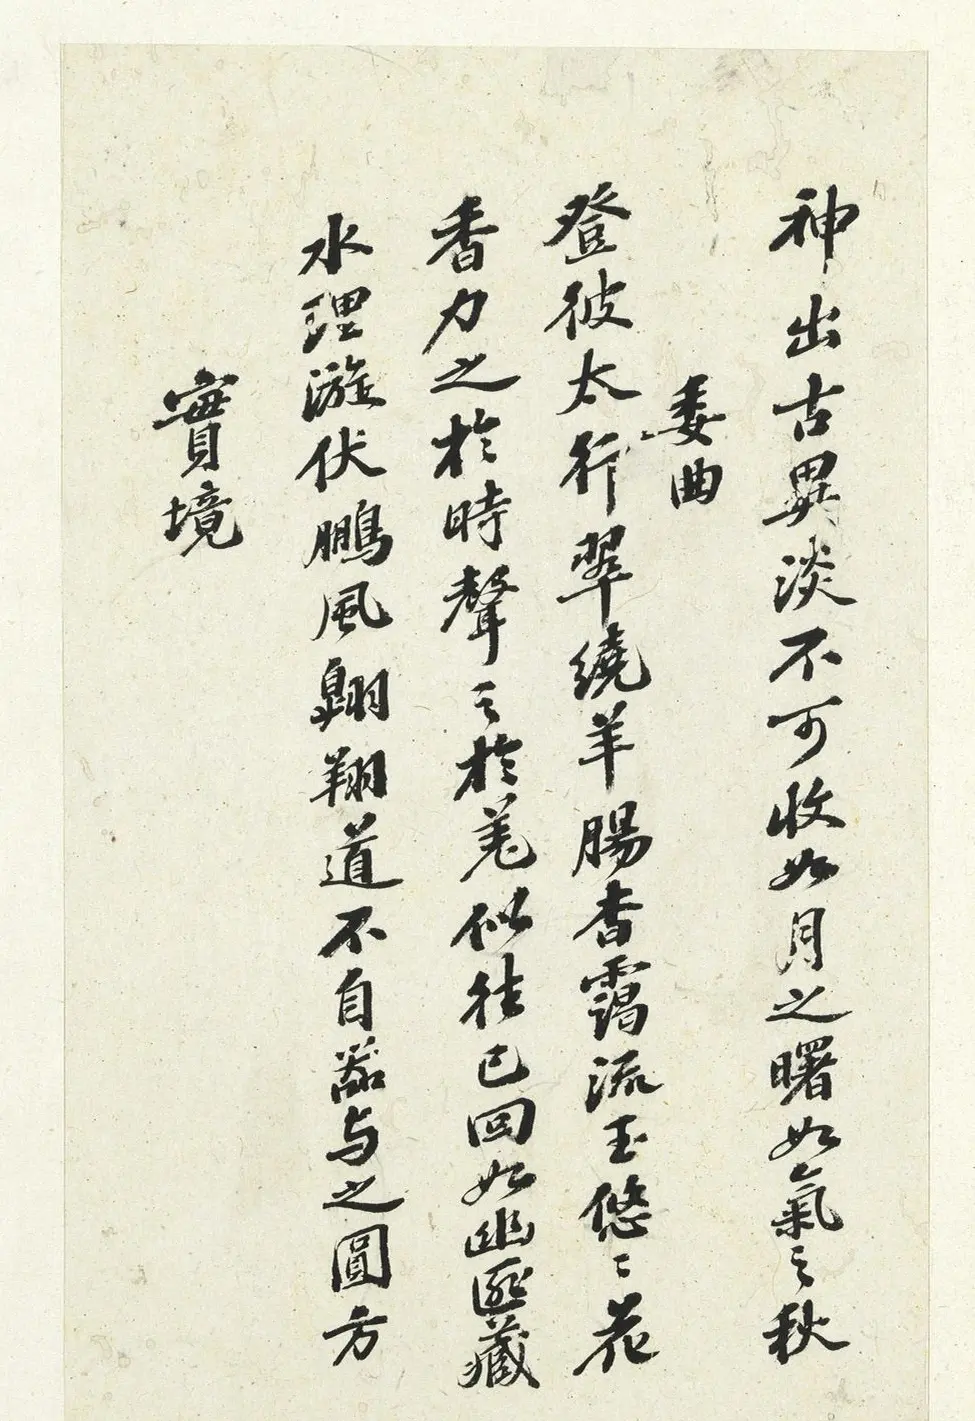 神出古異淡不可收如月之曙如氣之秋
委曲
登彼太行翠繞羊腸杳靄流玉悠〻花
香力之於時聲之於羌似往已回如幽匪藏
水理漩伏鵬風翱翔道不自器与之圓方
實境